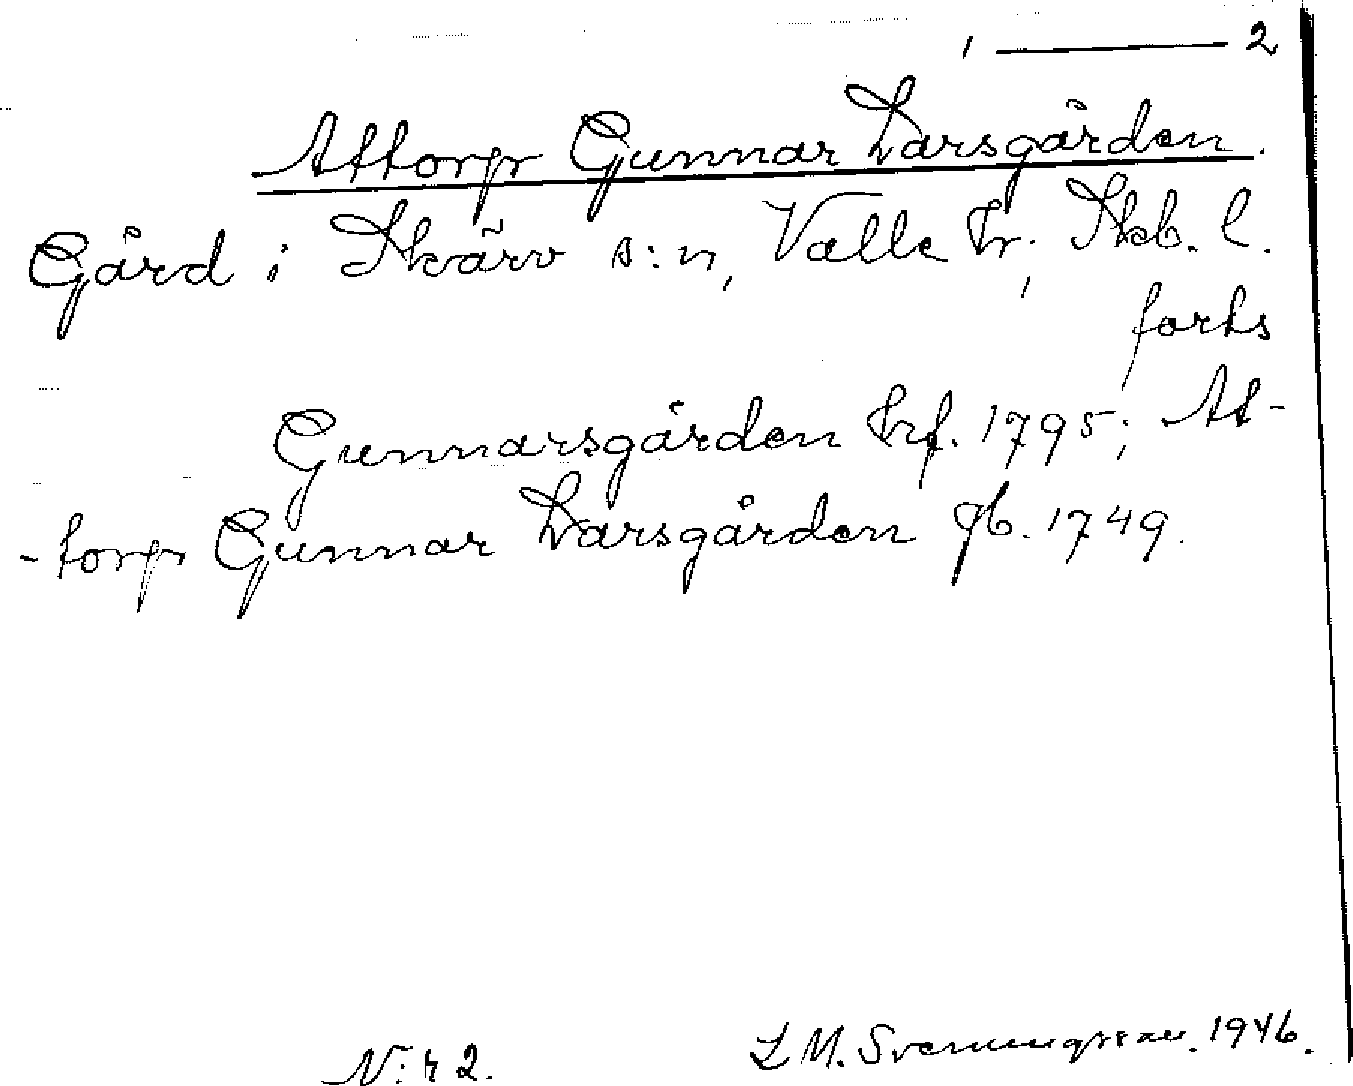 1 ——— 2
Attorp Gunnar Larsgården.
Gård i Skärv s:n, Valle hr, Skb. l.
forts
Gunnarsgården hrf. 1795; At-
-torp Gunnar Larsgården gb. 1749.
N:r 2.
L M. Svenungsson. 1946.